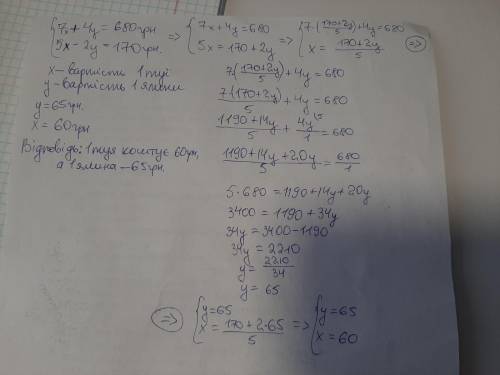 {7x + 4y = 680грн => {7x + 4y = 680 => {7(170+2y/5) + 4y = 680
5x - 2y = 170грн. 5x = 170 + 2y x = 170+2y/5 =>
x - вартість 1 туї
y - вартість 1 ялини
y = 65грн.
x = 60грн
Відповідь: 1 туя коштує 60грн,
а 1 ялина - 65грн.
7(170+2y/5) + 4y = 680
7(170+2y)/5 + 4y = 680
1190+14y/5 + 4y/1 ^(5 = 680
1190+14y+20y/5 = 680/1
5·680 = 1190 + 14y + 20y
3400 = 1190 + 34y
34y = 3400 - 1190
34y = 2210
y = 2210/34
y = 65
=> {y = 65 => {y = 65
x = 170+2·65/5 x = 60